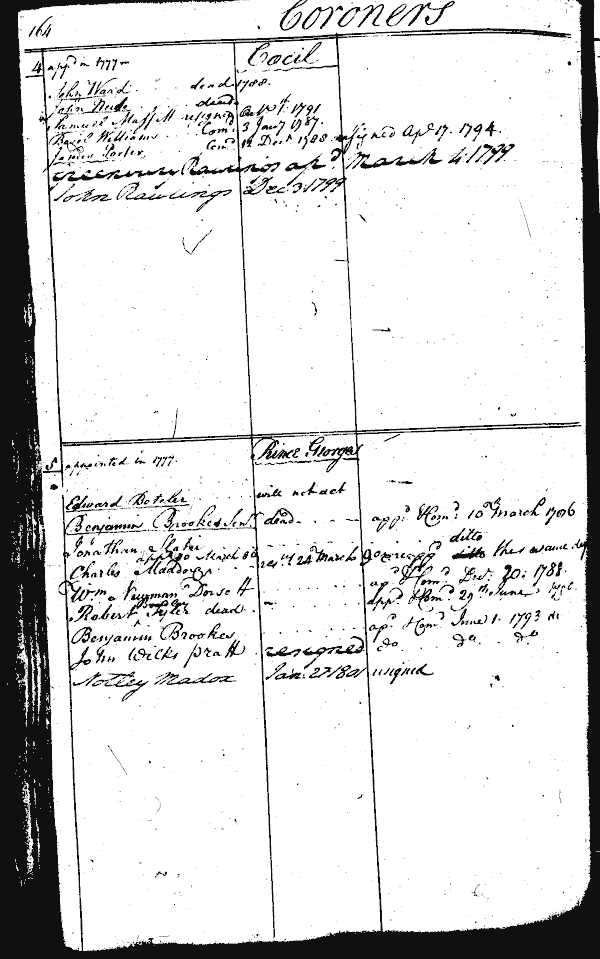 164
Coroners
4 app.d in 1777 Cecil
John Ward dead 1788.
John Neide dead
Samuel Maffitt resigned 1791
Bazel Williams Com. 3 Jany 1787.
James Porter Com.d 12 Decr 1788 resigned Apl 17. 1794.
Greenbury Rawlings ap.d March 4. 1799
John Rawlings Dec 3. 1799
5 appointed in 1777. Prince Georges
Edward Boteler will not act
Benjamin Brookes Senr dead. app.d & Com.d 10th March 1786
Jonathan Slater ditto
Charles Maddox 24 March
Wm Newman Dorsett ap.d Com.d 20. 1788.
Robert Tyler dead app.d Com.d 29th June
Benjamin Brookes ap.d Com.d June 1. 1793
John Wilks Pratt resigned do do do
Notley Madox Jan. 27 1801 resigned